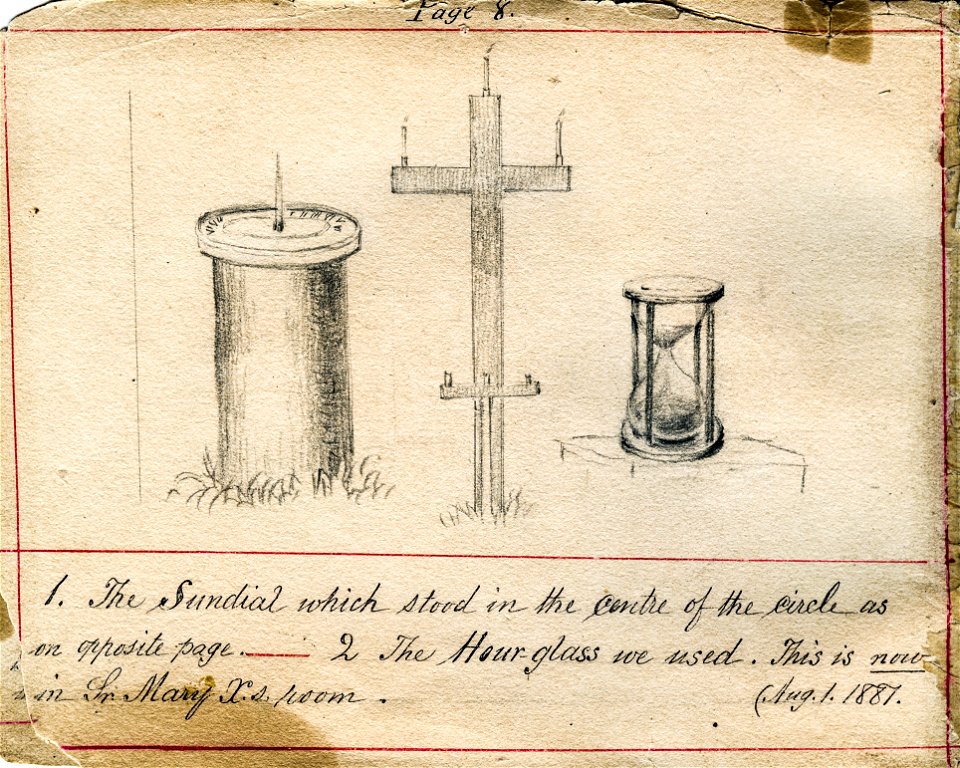 Page 8.
1. The Sundial which stood in the centre of the circle as
on opposite page. — 2 The Hour-glass we used. This is now
in Sr. Mary X.s. room.
(Aug. 1. 1887.